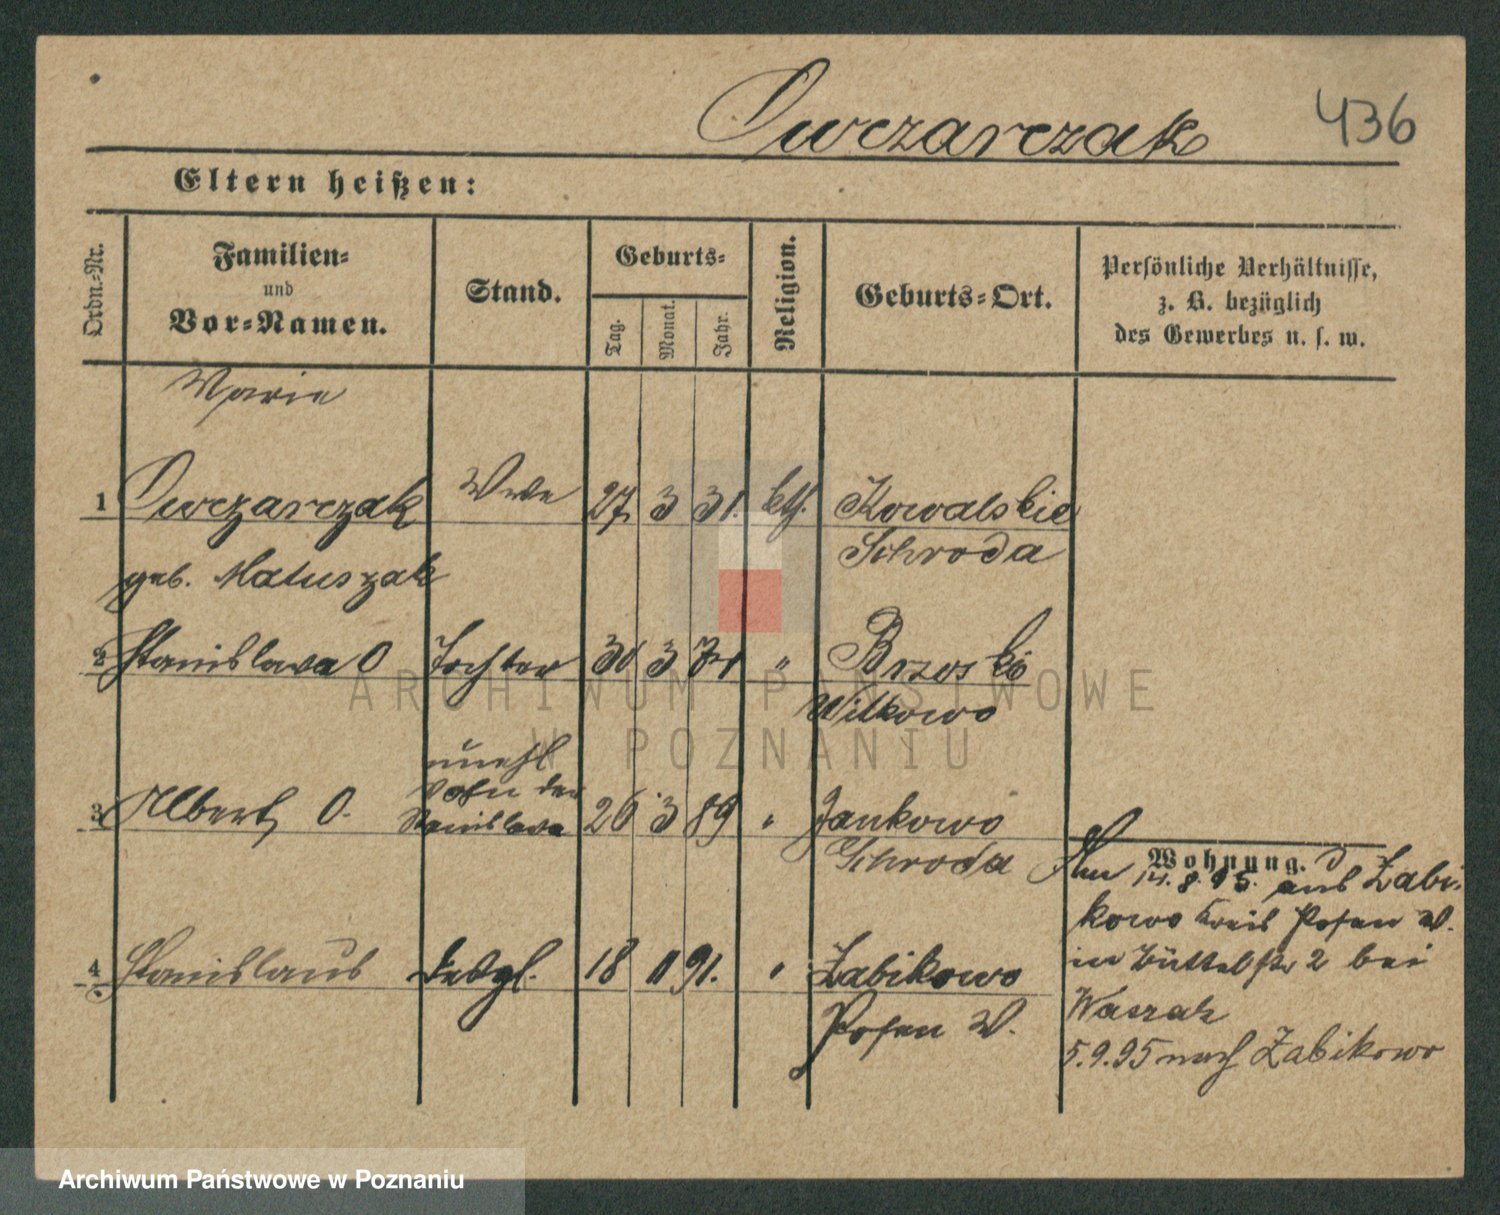 Owczarczak 436
Eltern heißen:
Ordn.-Nr.
Familien-
und
Vor-Namen.
Stand.
Geburts-
Tag.
Monat.
Jahr.
Religion.
Geburts-Ort.
Persönliche Verhältnisse,
z. B. bezüglich
des Gewerbes u. s. w.
Marie
1 Owczarczak Wwe 27 3 31. kth. Kowalskie
geb. Matuszak Schroda
2 Stanislawa O Tochter 30 3 71 " Brzoski
Witkowo
unehl
Sohn der
3 Albert O. Stanislawa 26 3 89 " Jankowo
Schroda
4 Stanislaus desgl. 18 11 91. " Zabikowo
Posen W.
Wohnung.
Am 14.8.95. aus Zabi-
kowo Kreis Posen W.
in Büttelstr 2 bei
Waszak
5.9.95 nach Zabikowo
ARCHIWUM PAŃSTWOWE
W POZNANIU
Archiwum Państwowe w Poznaniu